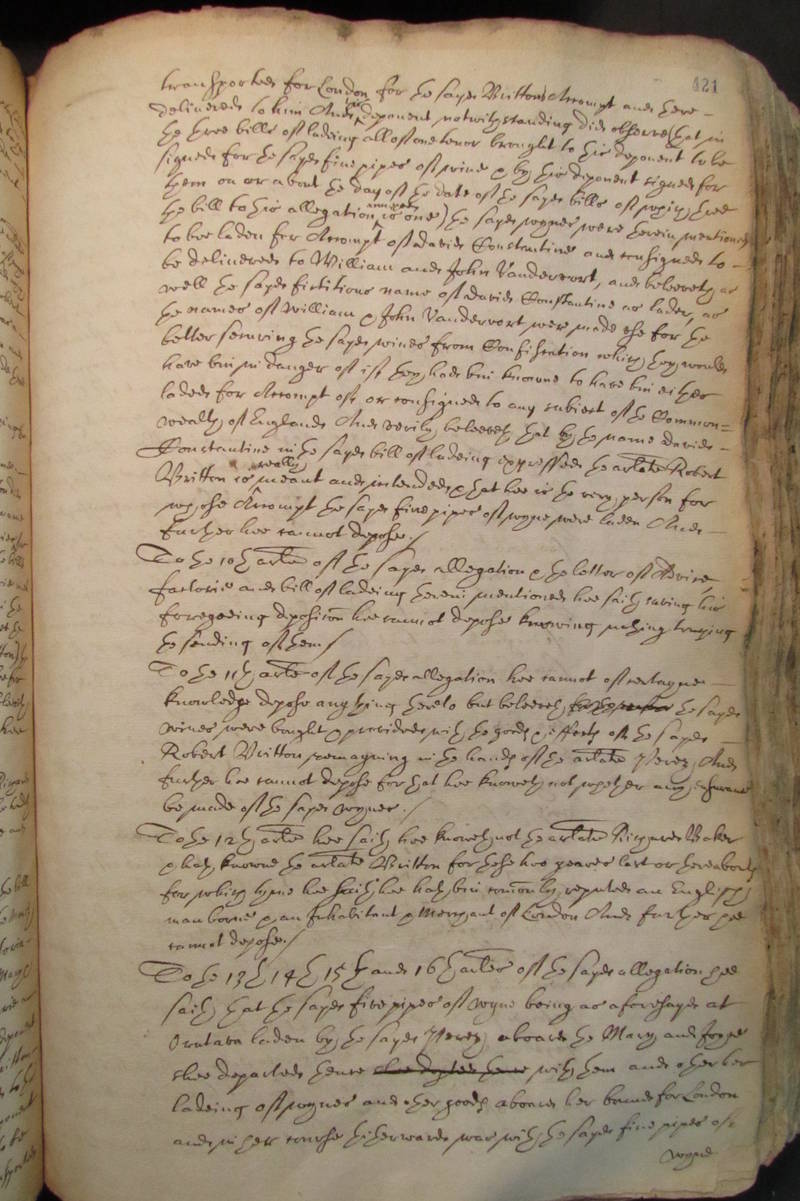 421
transported for London for the sayd Brittons Accompt and there
delivered to him And this deponent notwithstanding did observe that in
the three bills of ladeing all of one tenor brought to this deponent to be
signed for the sayd five pipes of wine & by this deponent signed for
them on or about the day of the date of the sayd bills of which three
the bill to this allegation annexed is one) the sayd wynes were therein mentioned
to bee laden for Accompt of david Constantine and consigned to
be delivered to William and John Vandervort, and beleeveth as
well the sayd fictitious name of david Constantine as lader, as
the names of William & John Vandervort were made use for the
better securing the sayd wines from Confiscation which they would
have bin in danger of if they had bin knowne to have bin either
laden for Accompt of or consigned to any subiect of the Common=
wealth of England And verily beleeveth that by the name david
Constantine in the sayd bill of ladeing expressed the arlate Robert
Britton is really meant and intended & that hee is the very person for
whose Accompt the sayd five pipes of wyne were laden And
further hee cannot depose./
To the 10th arlate of the sayd allegation & the letter of Advice
factorie and bill of ladeing therein mentioned hee saith saving his
foregoeing deposition hee cannot depose knowing nothing touching
the sending of them/
To the 11th arle of the sayd allegation hee cannot of certayne
knowledge depose any thing thereto but beleeveth the sayd
wines were bought & provided with the goods & effects of the sayd
Robert Britton remayning in the hands of the arlate Perez And
further hee cannot depose for that hee knoweth not whether any assurance
be made of the sayd wynes./
To the 12th arle hee saith hee knoweth not the arlate Richard Baker
& hath knowne the arlate Britton for these two yeares last or thereabouts
for which tyme hee saith hee hath bin comonly reputed an English
man borne & an Inhabitant & Merchant of London And further hee
cannot depose./
To the 13th 14th 15th and 16th arles of the sayd allegation hee
saith that the sayd five pipes of wyne being as aforesayd at
Orotava laden by the sayd Perez aboard the Mary and Joyce
shee departed thence with them and other her
ladeing of wynes and other goods aboard her bound for London
and in her course hitherwards was with the sayd five pipes of
wyne